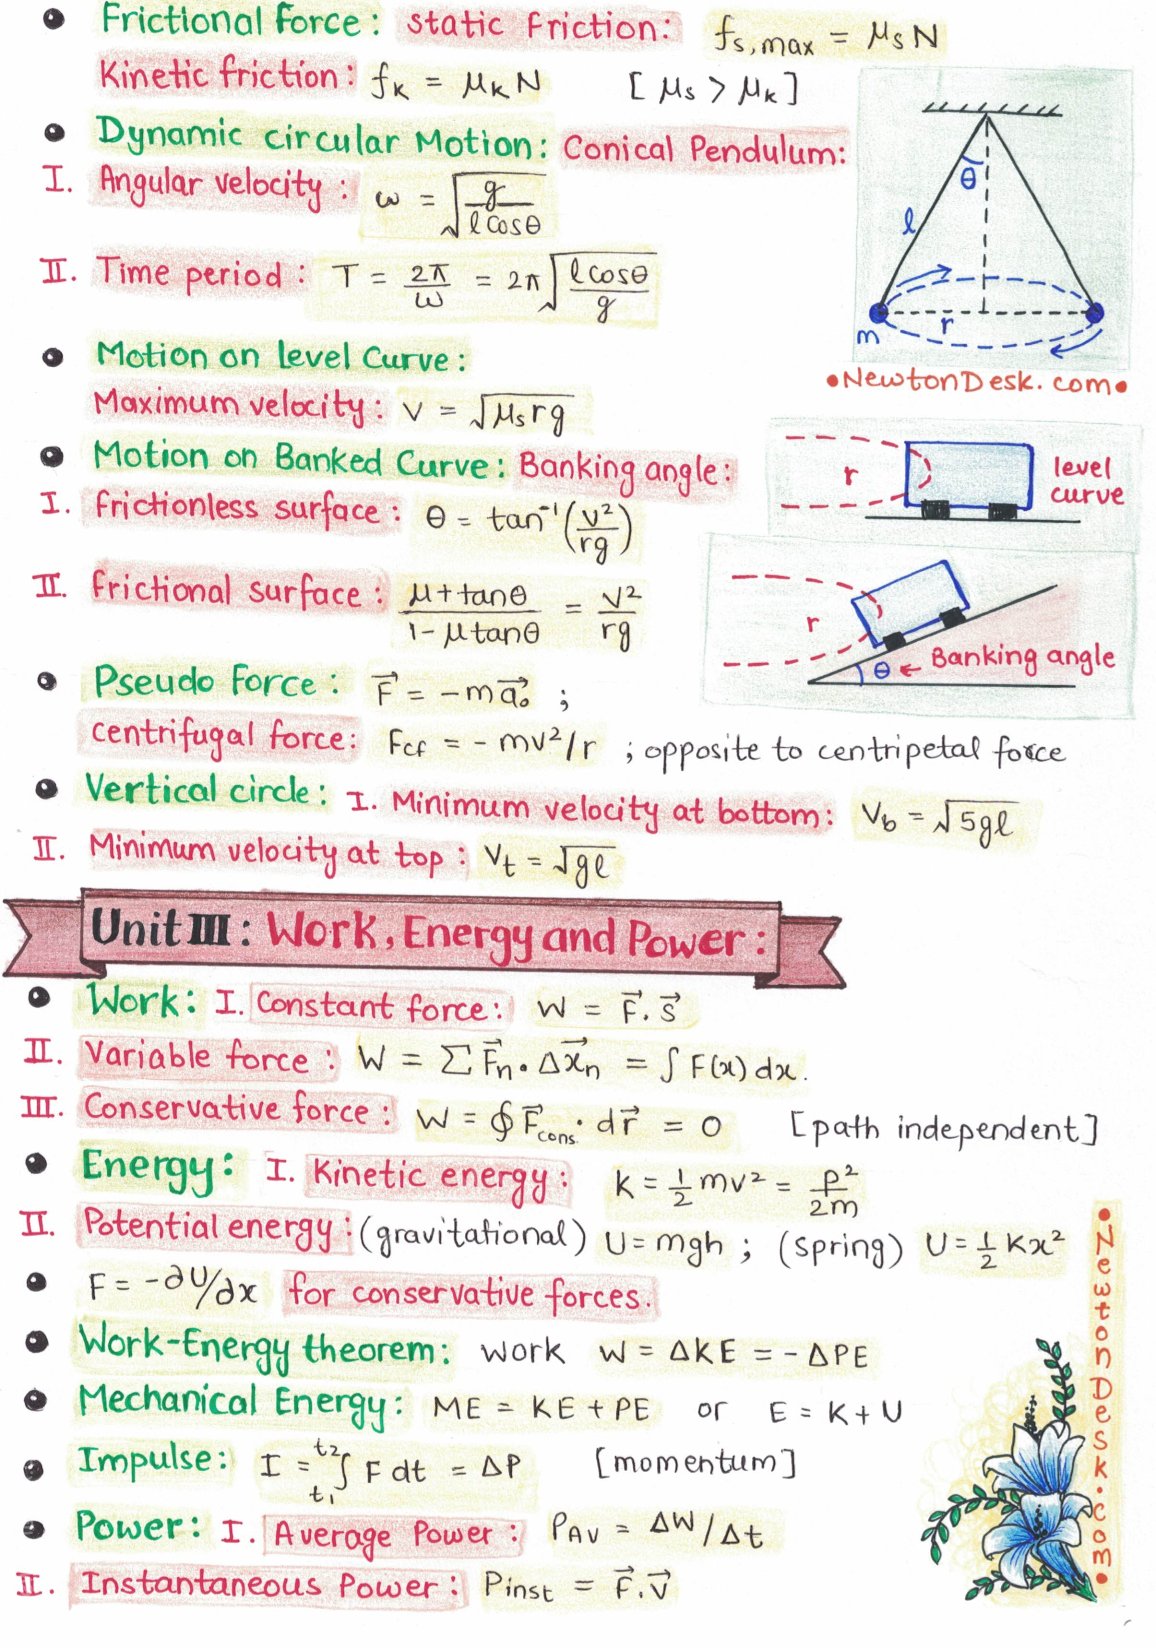 • Frictional Force: static Friction: fs,max = μsN
Kinetic friction: fk = μkN [μs > μk]
• Dynamic circular Motion: Conical Pendulum:
I. Angular velocity: ω = √(g/l cosθ)
II. Time period: T = 2π/ω = 2π√(l cosθ/g)
θ
l
r
m
•NewtonDesk.com•
• Motion on level Curve:
Maximum velocity: v = √μsrg
• Motion on Banked Curve: Banking angle:
I. frictionless surface: θ = tan⁻¹(v²/rg)
r
level
curve
II. frictional surface: μ+tanθ/1-μtanθ = v²/rg
r
θ ← Banking angle
• Pseudo Force: F⃗ = -ma⃗₀ ;
centrifugal force: Fcf = -mv²/r ; opposite to centripetal force
• Vertical circle: I. Minimum velocity at bottom: Vb = √5gl
II. Minimum velocity at top: Vt = √gl
Unit III: Work, Energy and Power:
• Work: I. Constant force: W = F⃗.s⃗
II. Variable force: W = ΣF⃗n.Δx⃗n = ∫F(x)dx.
III. Conservative force: W = ∮F⃗cons.dr⃗ = 0 [path independent]
• Energy: I. Kinetic energy: K = ½mv² = p²/2m
II. Potential energy: (gravitational) U=mgh ; (spring) U=½Kx²
• F = -∂U/∂x for conservative forces.
• Work-Energy theorem: work W = ΔKE = -ΔPE
• Mechanical Energy: ME = KE + PE or E = K + U
• Impulse: I = t₁∫t₂ F dt = ΔP [momentum]
• Power: I. Average Power: PAV = ΔW/Δt
II. Instantaneous Power: Pinst = F⃗.v⃗
•NewtonDesk.com•